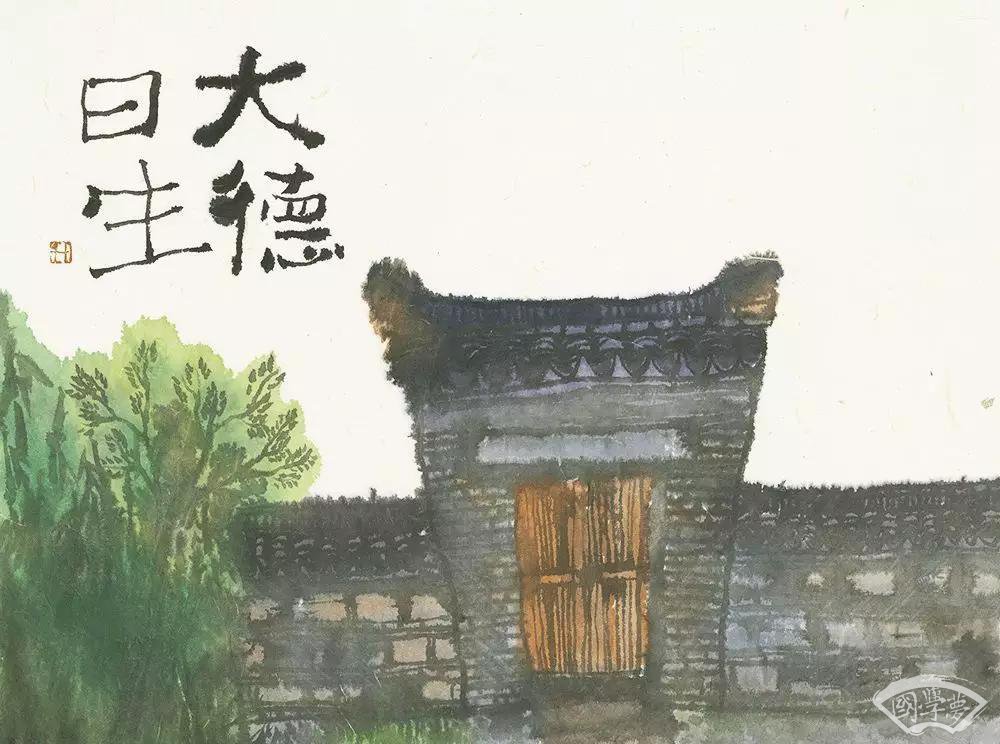 大德
曰生
國學夢